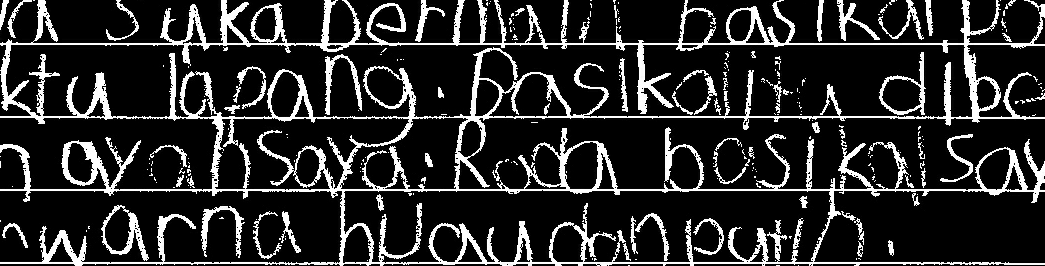 a suka bermain basikal
ktu lapang. Basikal itu dibe
n ayah saya. Roda basikal say
nwarna hijau dan putih.